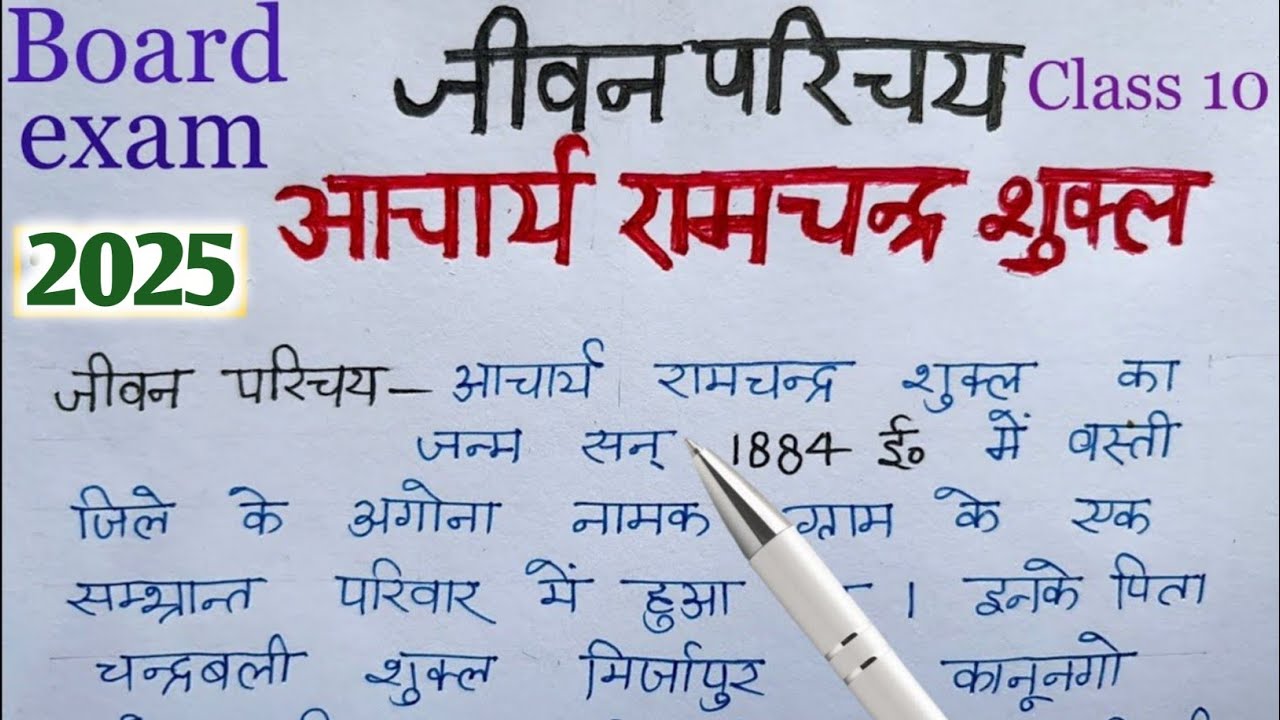 Board
exam
जीवन परिचय
Class 10
आचार्य रामचन्द्र शुक्ल
2025
जीवन परिचय – आचार्य रामचन्द्र शुक्ल का
जन्म सन् 1884 ई० में बस्ती
जिले के अगोना नामक ग्राम के एक
सम्भ्रान्त परिवार में हुआ । इनके पिता
चन्द्रबली शुक्ल मिर्जापुर कानूनगो